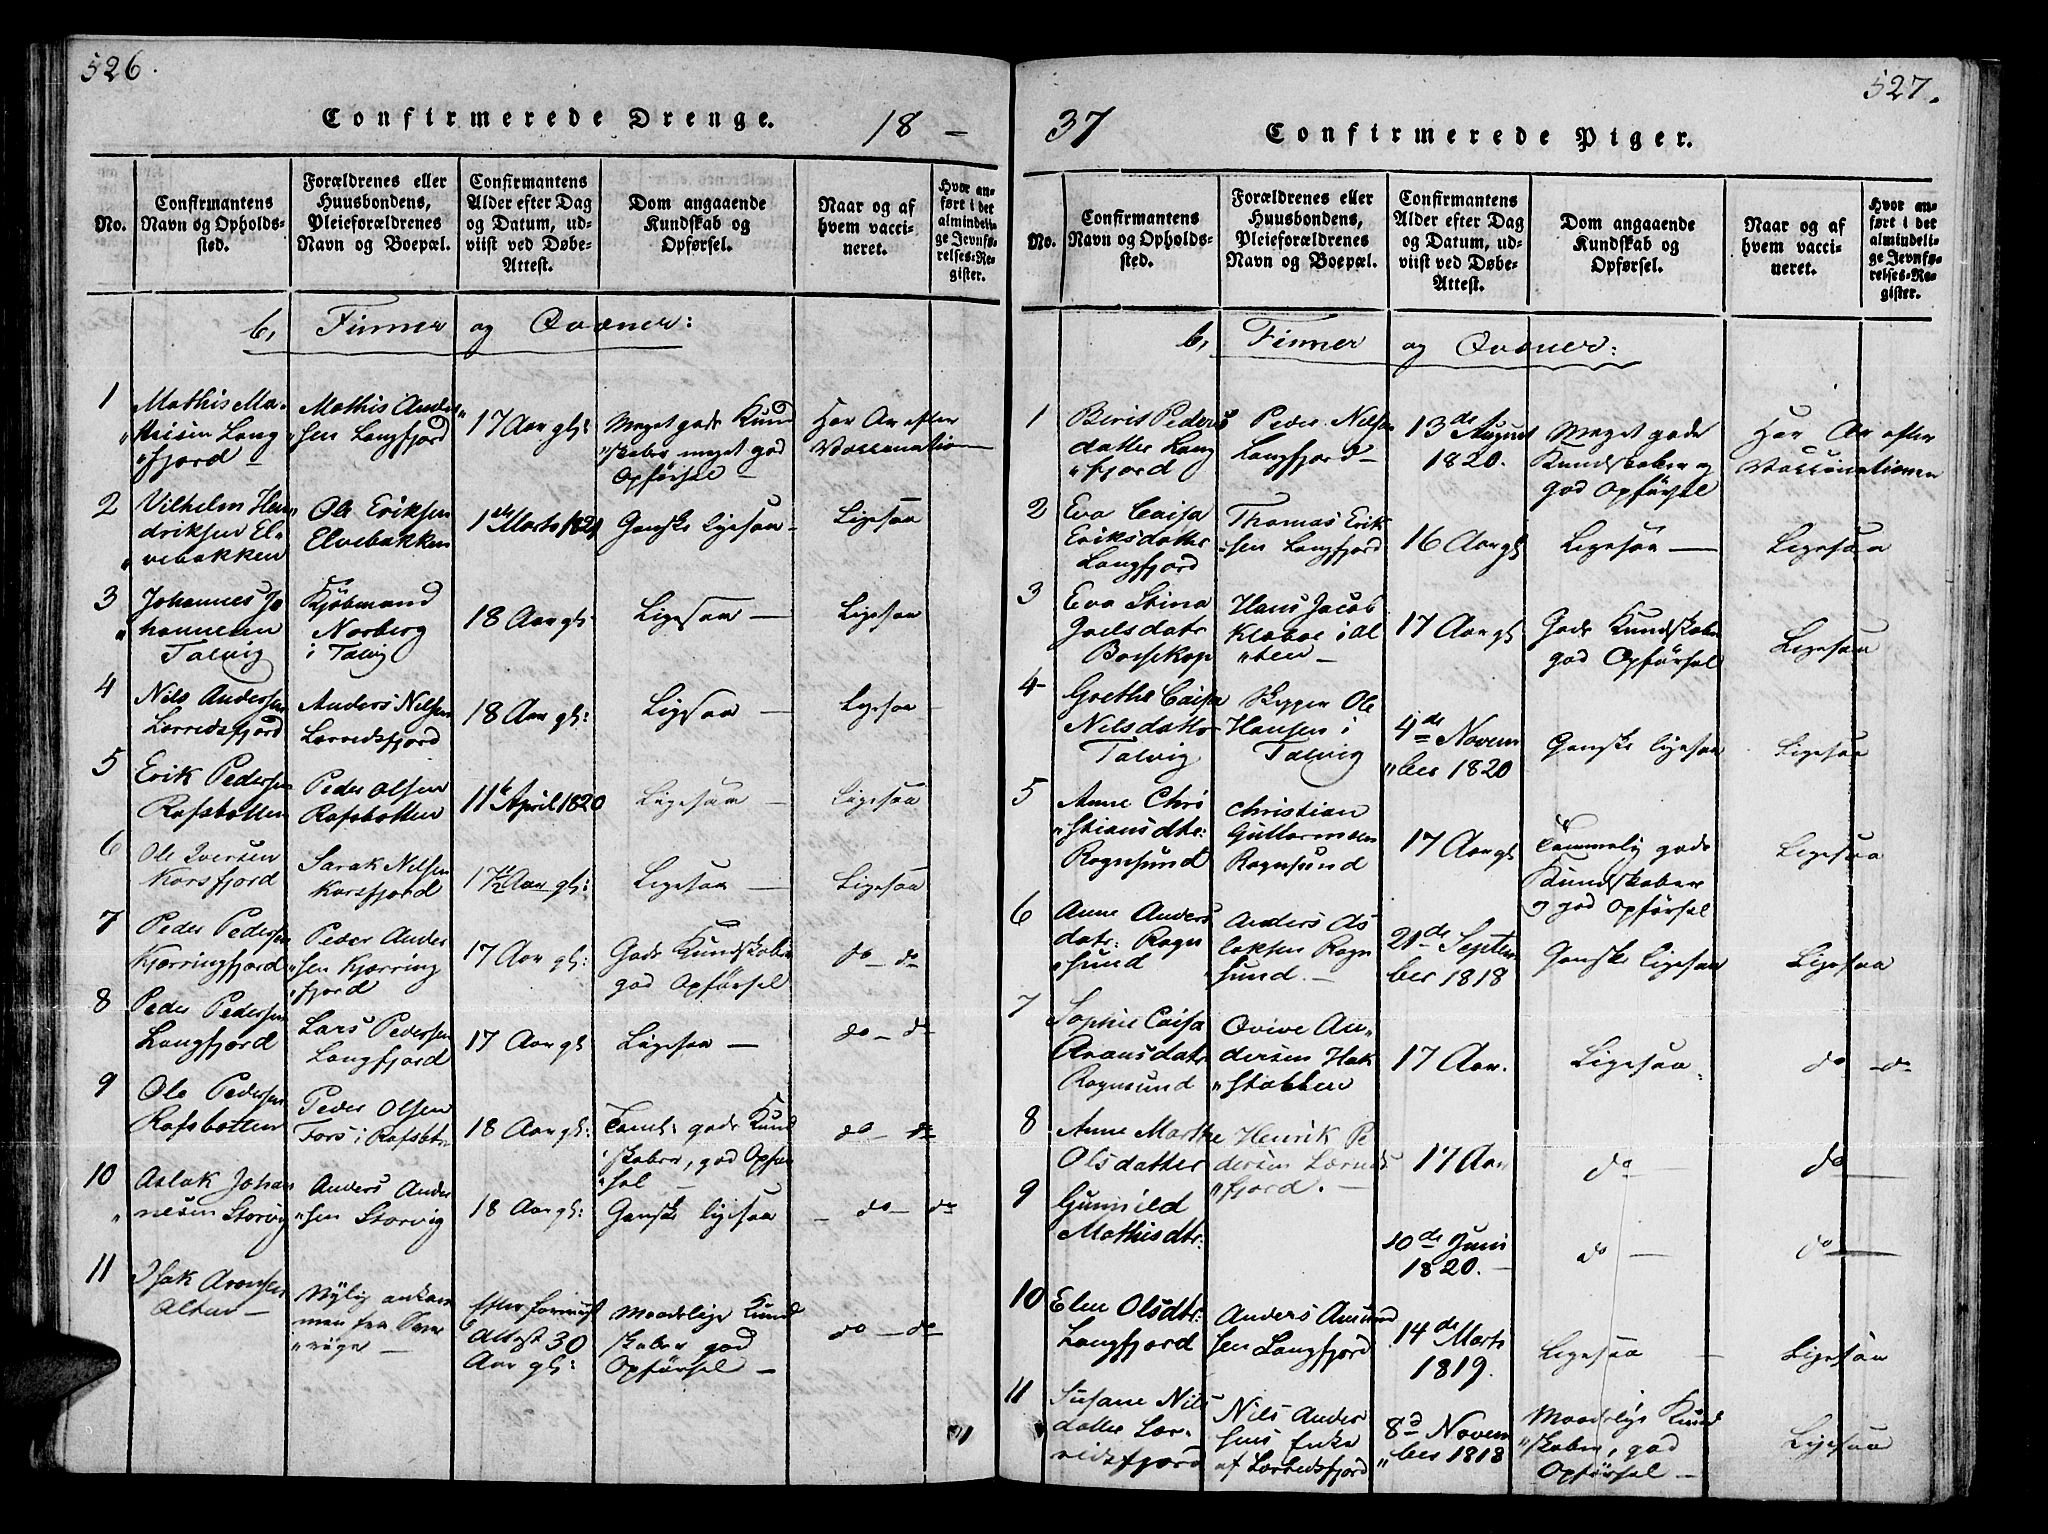 526.
Confirmerede Drenge.
18 –
No.
Confirmantens
Navn og Opholds-
sted.
Forældrenes eller
Huusbondens,
Pleieforældrenes
Navn og Boepæl.
Confirmantens
Alder efter Dag
og Datum, ud-
viist ved Døbe-
Attest.
Dom angaaende
Kundskab og
Opførsel.
Naar og af
hvem vacci-
neret.
Hvor an-
ført i det
almindeli-
ge Jevnfø-
relses-Re-
gister.
b, Finner og Qvæner:
1
Mathis Ma-
thisen Lang
fjord –
Mathis Ander
sen Langfjord
17 Aar gl:
Meget gode Kund
skaber meget god
Opførsel –
Har Ar efter
Vaccination
2
Vilhelm Hen
driksen El-
vebakken
Ole Eriksen
Elvebakken
1de Marts 1821
Ganske ligesaa –
Ligesaa
3
Johannes Jo
hannesen
Talvig
Kjøbmand
Norberg
i Talvig
18 Aar gl:
Ligesaa –
Ligesaa
4
Nils Andersen
Lerredsfjord
Anders Nilsen
Lerredsfjord
18 Aar gl:
Ligesaa –
Ligesaa
5
Erik Pedersen
Rafsbotten
Peder Olsen
Rafsbotten
11te April 1820
Ligesaa –
Ligesaa
6
Ole Iversen
Korsfjord
Sarak Nilsen
Korsfjord
17½ Aar gl:
Ligesaa –
Ligesaa
7
Peder Pedersen
Kjerringfjord
Peder Ander
sen Kjerring
fjord
17 Aar gl:
Gode Kundskaber
god Opførsel
do – do
8
Peder Pedersen
Langfjord
Lars Pedersen
Langfjord
17 Aar gl:
Ligesaa –
do – do
9
Ole Pedersen
Rafsbotten
Peder Olsen
Fors i Rafsbt:
18 Aar gl:
Teml: gode Kund
skaber, god Opfør
sel –
do – do
10
Aslak Johan
nesen Storvig
Anders Ander
sen Storvig
18 Aar gl:
Ganske ligesaa
– do – do
11
Isak Aronsen
Alten –
Nylig ankom
men fra Sver
rige –
Efter foreviist
Attest 30
Aar gl:
Maadelige Kund
skaber god
Opførsel –
do – do
527.
37
Confirmerede Piger.
No.
Confirmantens
Navn og Opholds-
sted.
Forældrenes eller
Huusbondens,
Pleieforældrenes
Navn og Boepæl.
Confirmantens
Alder efter Dag
og Datum, ud-
viist ved Døbe-
Attest.
Dom angaaende
Kundskab og
Opførsel.
Naar og af
hvem vacci-
neret.
Hvor an-
ført i det
almindeli-
ge Jevnfø-
relses-Re-
gister.
b, Finner og Qvæner:
1
Berit Peders
datter Lang
fjord
Peder Nilsen
Langfjord –
13de August
1820.
Meget gode
Kundskaber og
god Opførsel
Har Ar efter
Vaccinationen
2
Eva Caisa
Eriksdatter
Langfjord
Thomas Erik
sen Langfjord
16 Aar gl
Ligesaa –
Ligesaa
3
Eva Stina
Joelsdatr
Bossekop
Hans Jacob
Klæboe i Al
ten –
17 Aar gl
Gode Kundskaber
god Opførsel
Ligesaa
4
Grethe Caisa
Nilsdatter
Talvig
Skipper Ole
Hansen i
Talvig
4de Novem
ber 1820
Ganske ligesaa
Ligesaa
5
Anne Chri
stiansdtr:
Rognsund
Christian
Guttormsen
Rognsund
17 Aar gl
Temmelig gode
Kundskaber
og god Opførsel
Ligesaa
6
Anne Anders
datr: Rogn
sund
Anders As
laksen Rogn
sund. –
21de Septem
ber 1818
Ganske ligesaa
Ligesaa
7
Sophie Caisa
Aronsdatr
Rognsund
Qvive An
dersen Hak
stabben
17 Aar.
Ligesaa
do – do
8
Anne Marthe
Olsdatter
Henrik Pe
dersen Lerreds
fjord. –
17 Aar
do –
do –
9
Gunnild
Mathisdtr:
10de Juni
1820. –
do –
do –
10
Elen Olsdtr:
Langfjord
Anders Amund
sen Langfjord
14de Marts
1819.
Ligesaa –
Ligesaa
11
Susane Nils
datter Ler-
redsfjord
Nils Ander
sens Enke
af Lerredsfjord
8d Novem
ber 1818
Maadelige Kund
skaber, god
Opførsel –
Ligesaa